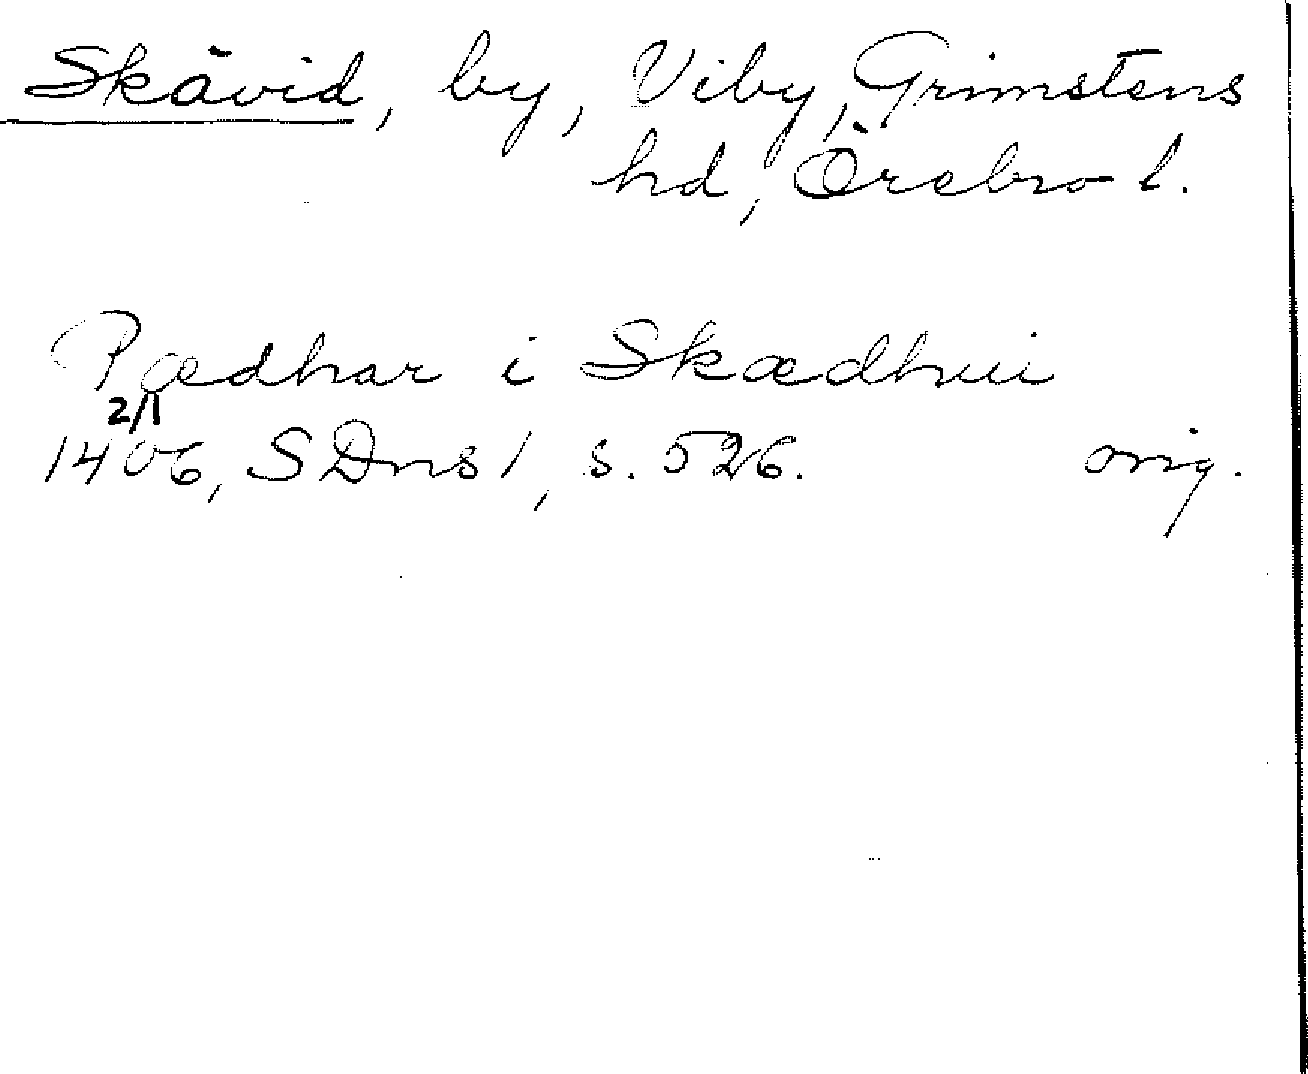 Skävid, by, Viby, Grimstens
hd, Örebro l.
Pædhar i Skædhui
2/1
1406, SDns 1, s. 526. orig.